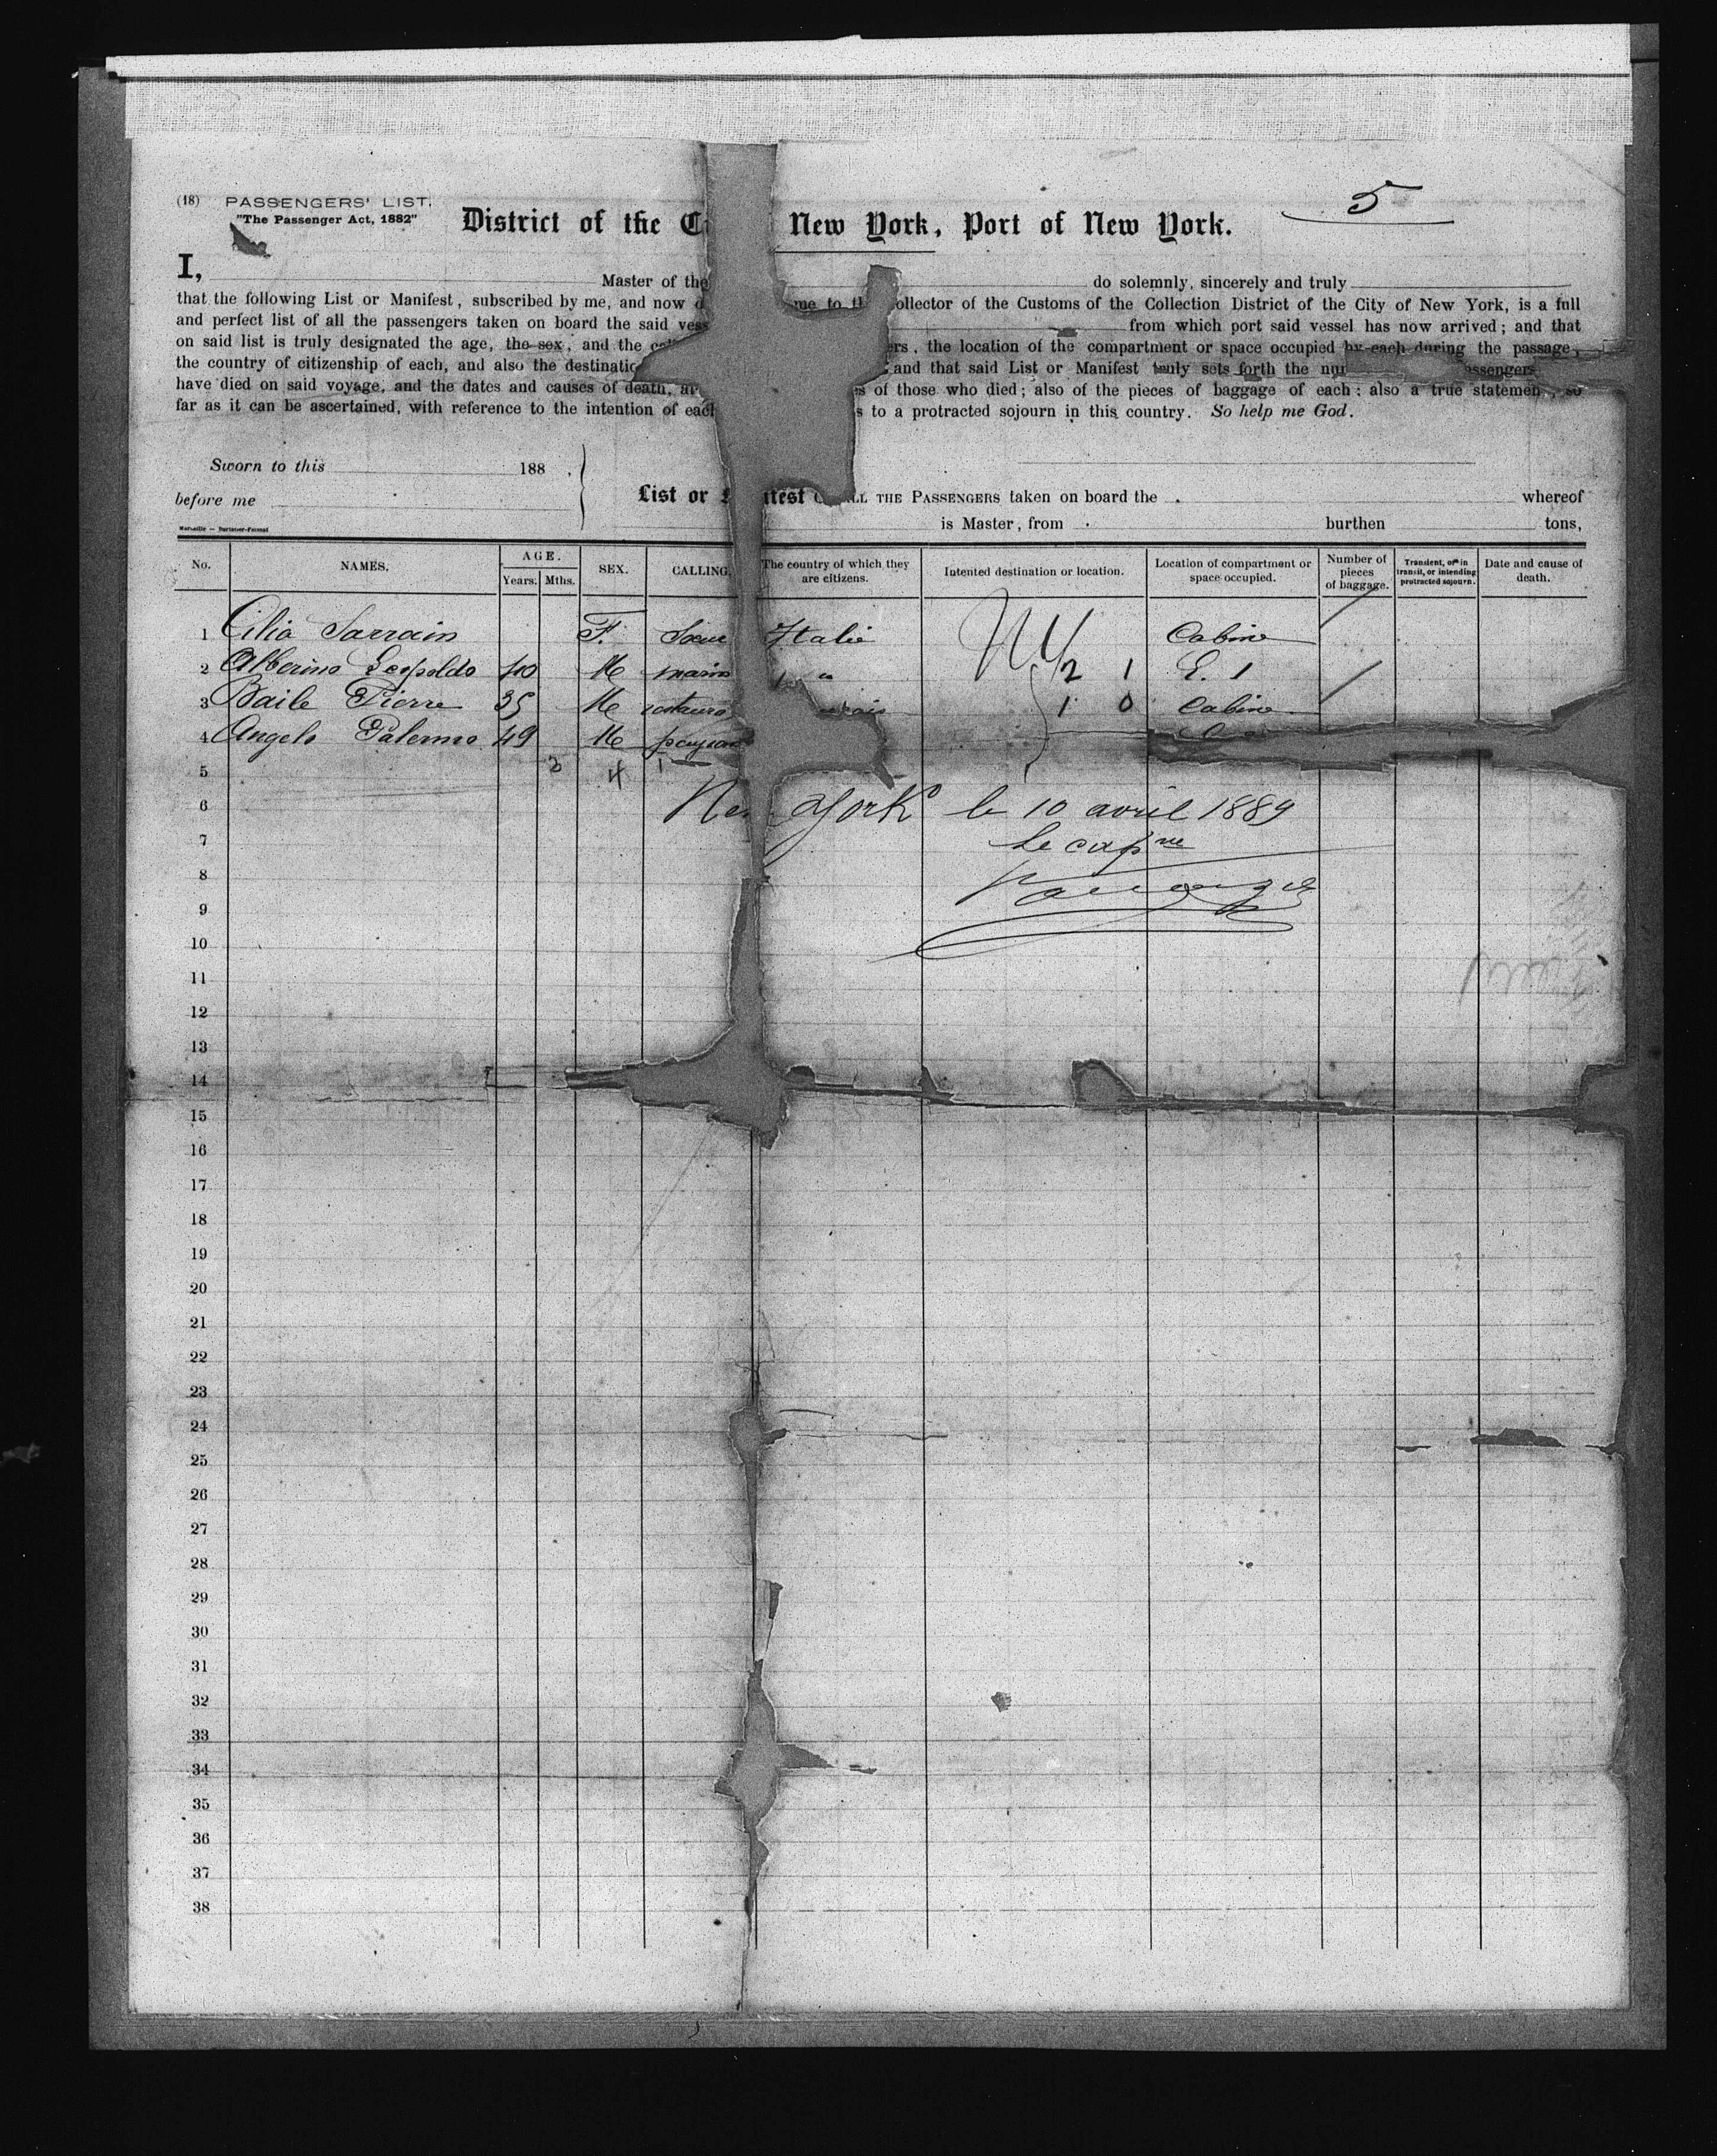 5
(18) PASSENGERS' LIST.
"The Passenger Act, 1882"
District of the C New York, Port of New York.
I, Master of the do solemnly, sincerely and truly
that the following List or Manifest, subscribed by me, and now d me to th ollector of the Customs of the Collection District of the City of New York, is a full
and perfect list of all the passengers taken on board the said vess from which port said vessel has now arrived; and that
on said list is truly designated the age, the sex, and the ers, the location of the compartment or space occupied by each during the passage,
the country of citizenship of each, and also the destinatio and that said List or Manifest truly sets forth the nu assengers
have died on said voyage, and the dates and causes of death, a s of those who died; also of the pieces of baggage of each; also a true statemen, so
far as it can be ascertained, with reference to the intention of each s to a protracted sojourn in this country. So help me God.
Sworn to this 188 .
before me
List or ifest LL THE PASSENGERS taken on board the whereof
is Master, from burthen tons,
No. NAMES. AGE. Years. Mths. SEX. CALLING. The country of which they are citizens. Intented destination or location. Location of compartment or space occupied. Number of pieces of baggage. Transient, or in transit, or intending protracted sojourn. Date and cause of death.
1 Cilia Sarrain F. Soeur Italie NY Cabine
2 Alberino Leopoldo 40 M marin " 2 1 E. 1
3 Baile Pierre 35 M 1 0 Cabine
4 Angelo Palermo 49 M paysan
5 4 1
6 New York le 10 avril 1889
7 Le cap ne
8
9
10
11
12
13
14
15
16
17
18
19
20
21
22
23
24
25
26
27
28
29
30
31
32
33
34
35
36
37
38